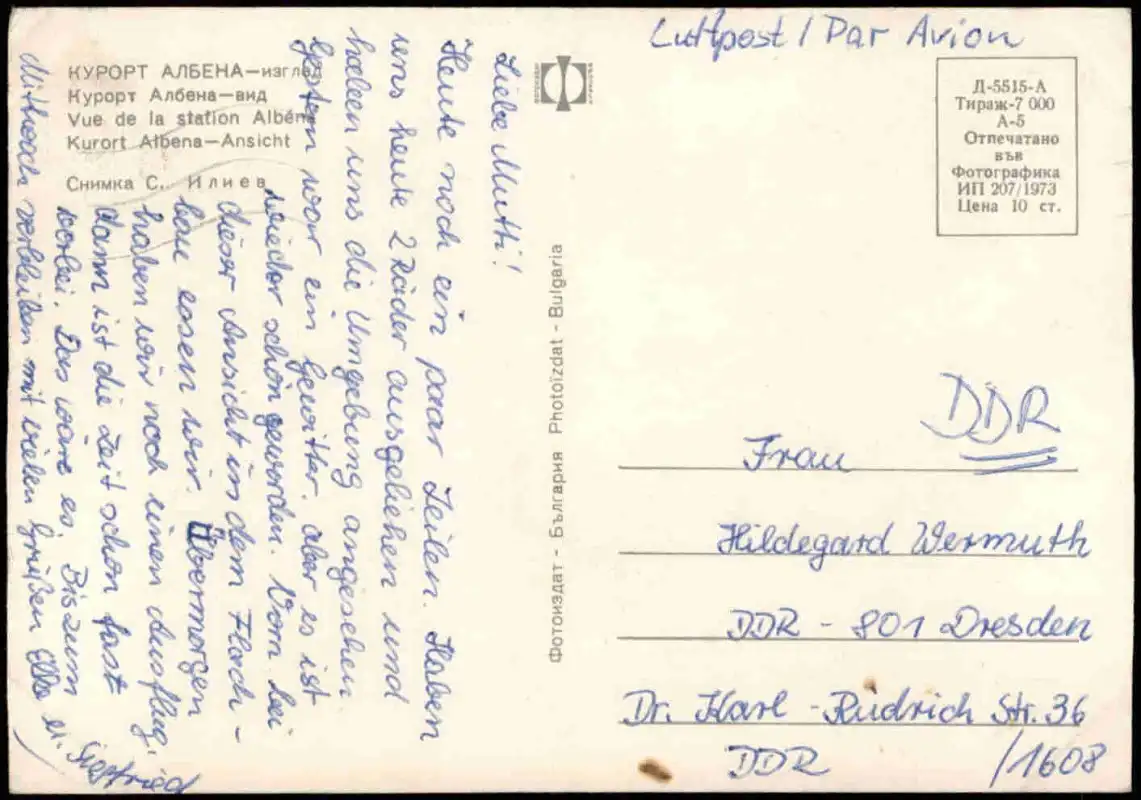 КУРОРТ АЛБЕНА—изглед
Курорт Албена—вид
Vue de la station Albéna
Kurort Albena—Ansicht
Снимка С. Илиев
Liebe Mutti!
Heute noch ein paar Zeilen. Haben
uns heute 2 Räder ausgeliehen und
haben uns die Umgebung angesehen
Gestern war ein Gewitter, aber es ist
wieder schön geworden. Vorn bei
dieser Ansicht in dem Flach-
bau essen wir. Übermorgen
haben wir noch einen Ausflug,
dann ist die Zeit schon fast
vorbei. Das wäre es. Bis zum
Mittwoch verbleiben mit vielen Grüßen Elke u. Siegfried
Фотоиздат - България Photoizdat - Bulgaria
Luftpost / Par Avion
Д-5515-А
Тираж-7 000
А-5
Отпечатано
във
Фотографика
ИП 207/1973
Цена 10 ст.
DDR
Frau
Hildegard Wermuth
DDR - 801 Dresden
Dr. Karl - Rudrich Str. 36
DDR /1608